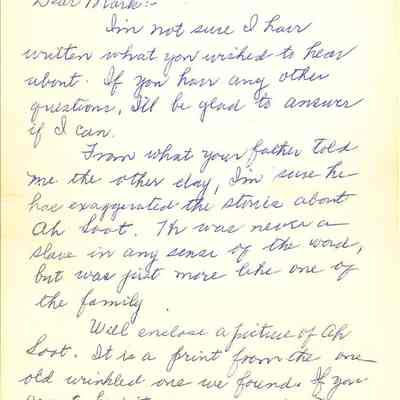 Dear Mark:-
I'm not sure I have
written what you wished to hear
about. If you have any other
questions, I'll be glad to answer
if I can.
From what your father told
me the other day, I'm sure he
has exaggerated the stories about
Ah Soot. He was never a
slave in any sense of the word,
but was just more like one of
the family.
Will enclose a picture of Ah
Soot. It is a print from the one
old wrinkled one we found. If you